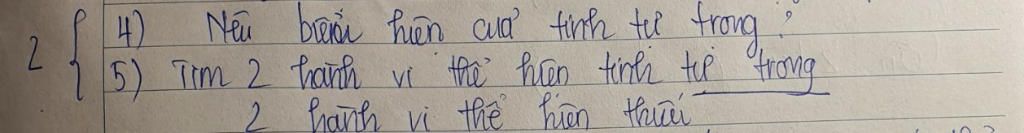 2 { 4) Nêu biểu hiện của tính tự trọng?
5) Tìm 2 hành vi thể hiện tính tự trọng
2 hành vi thể hiện thiếu